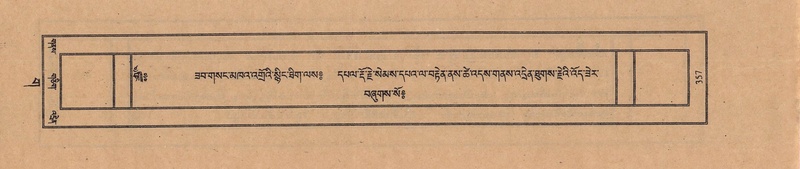 ཟབ་གསང་མཁའ་འགྲོའི་སྙིང་ཐིག་ལས༔ དཔལ་རྡོ་རྗེ་སེམས་དཔའ་ལ་བརྟེན་ནས་ཚེ་འདས་གནས་འདྲེན་ཐུགས་རྗེའི་འོད་ཟེར་
བཞུགས་སོ༔
357